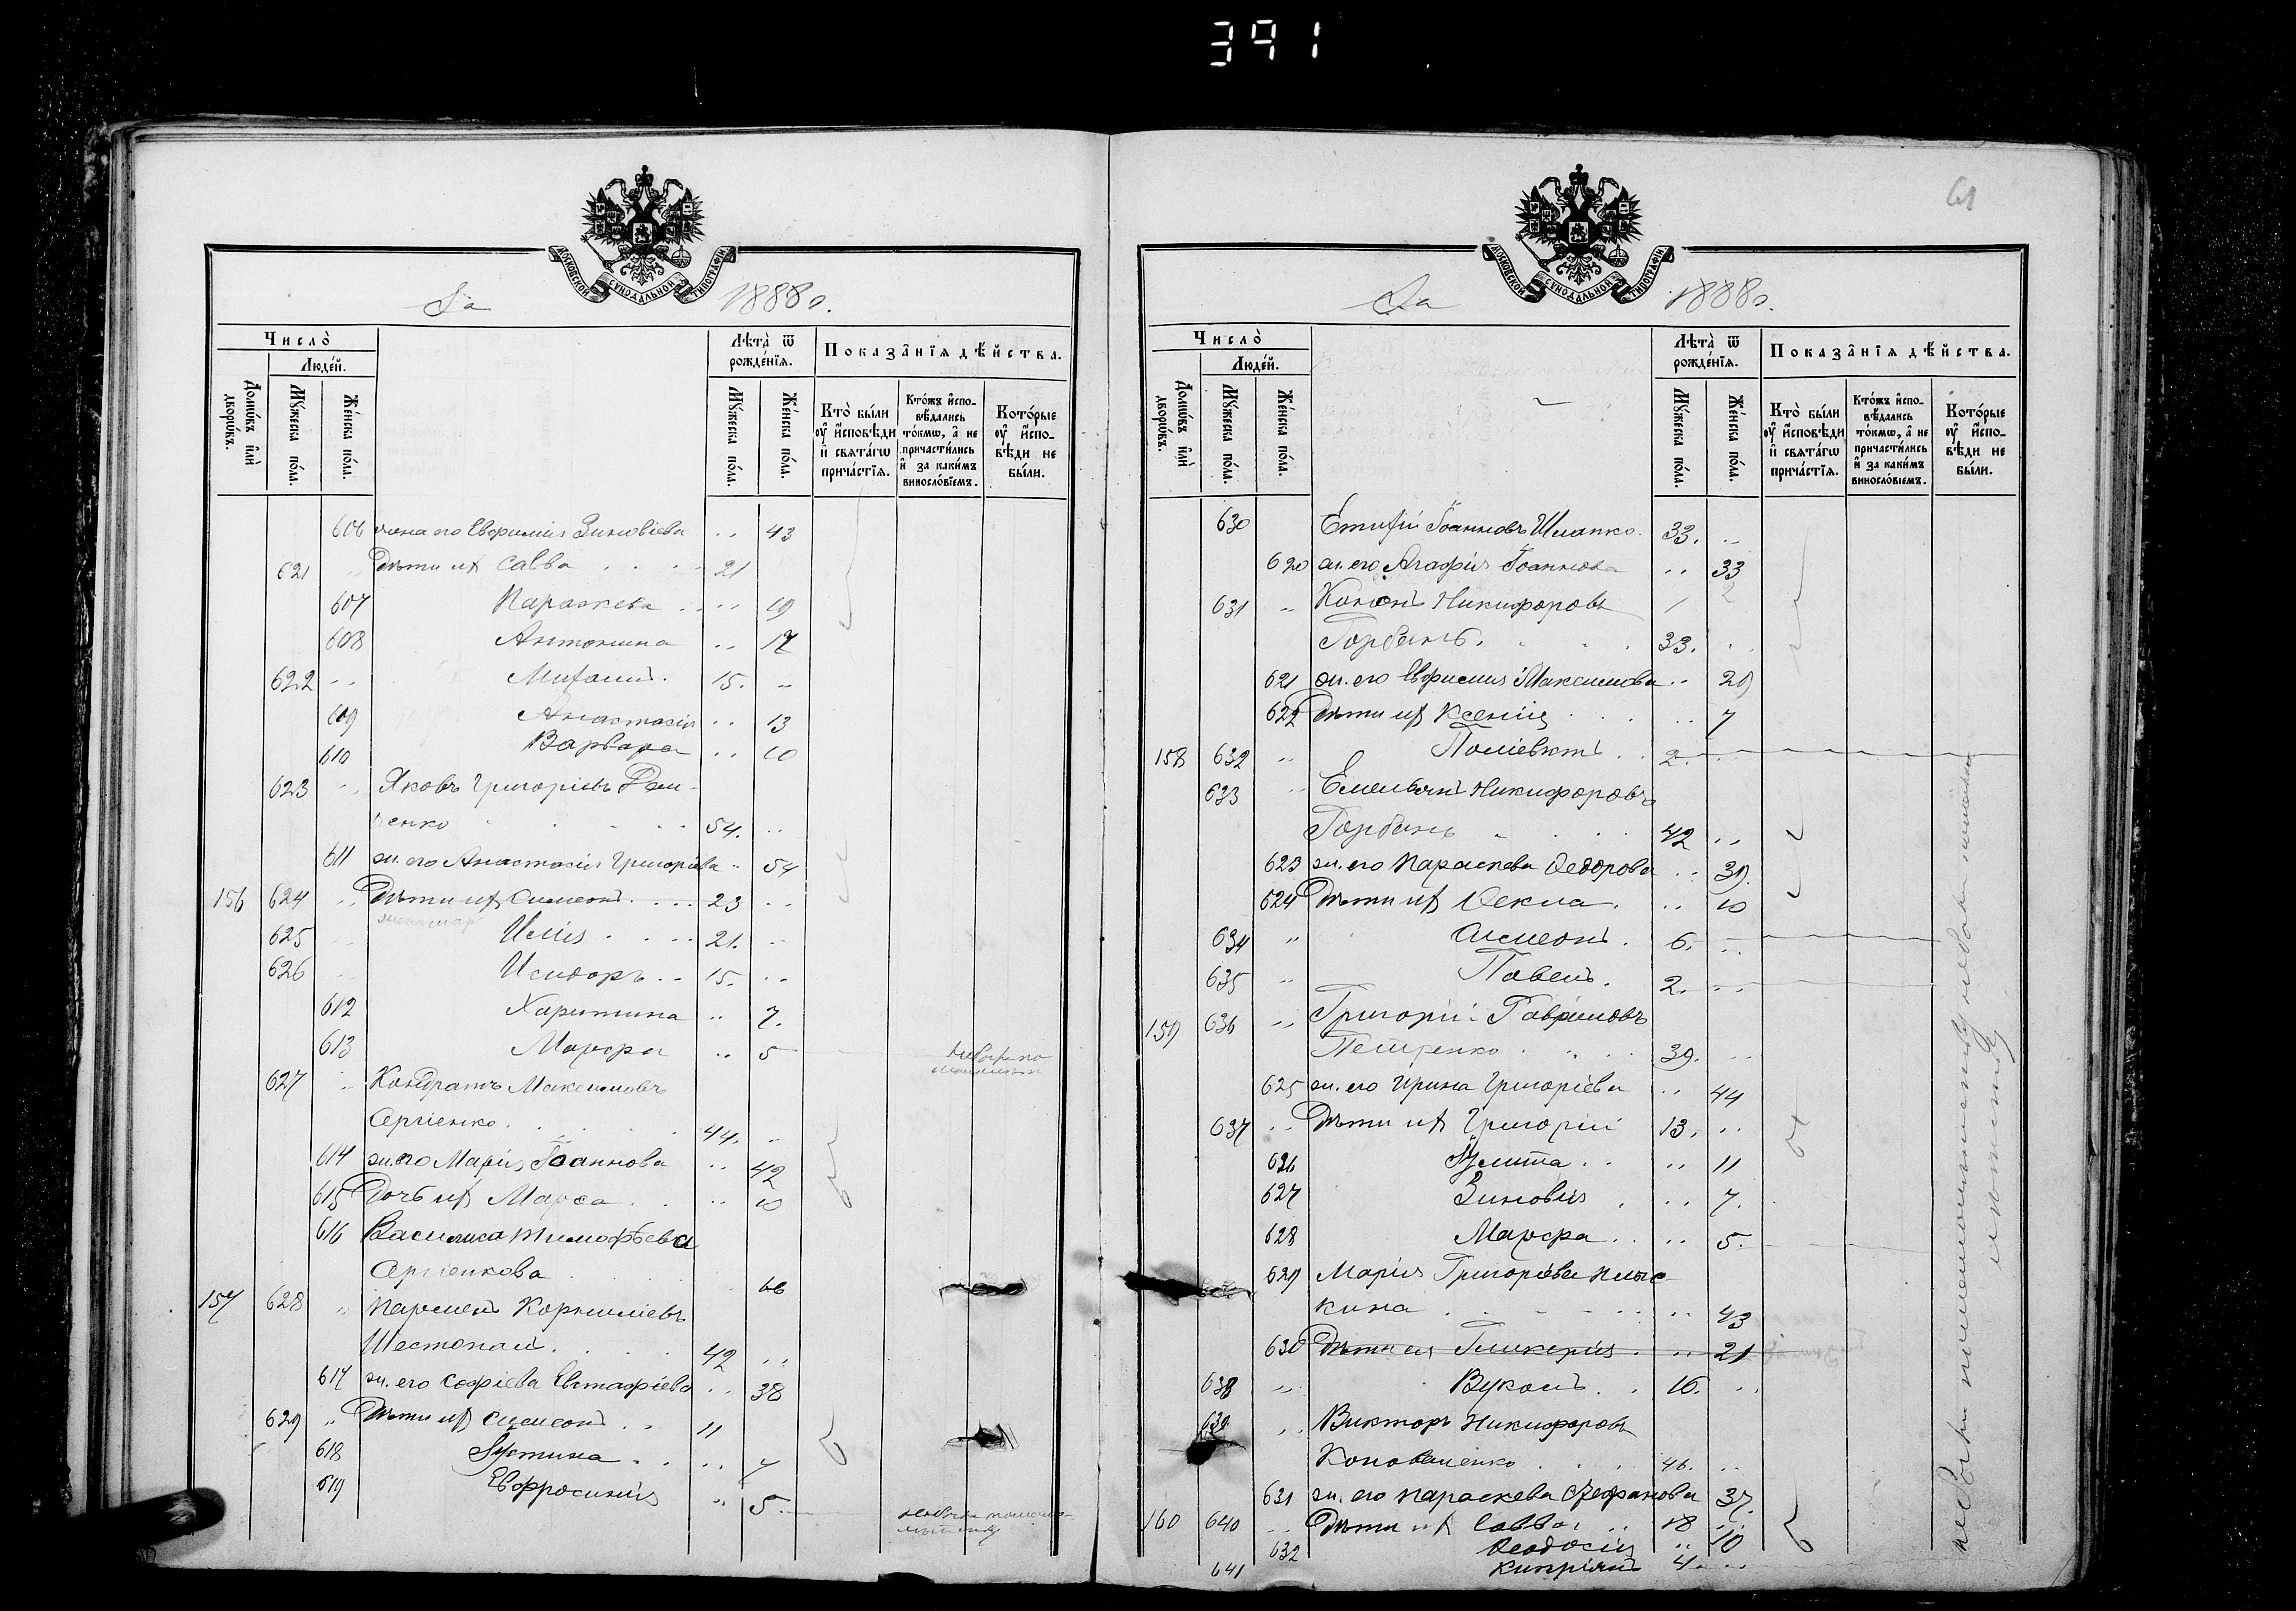 391
МОСКОВСКОЙ СѴНОДАЛЬНОЙ ТИПОГРАФІИ
За 1888 г.
Число̀
Людéй.
Домѡ́въ и҆лѝ дворѡ́въ.
Мꙋ́жеска пóла.
Жéнска пóла.
Лѣта̀ ѿ рожде́нїѧ.
Мꙋ́жеска пóла.
Жéнска пóла.
Показа̂нїѧ дѣ́йства.
Кто̀ бы́ли ᲂу҆ и҆́сповѣди и҆ свѧта́гѡ причáстїѧ.
Кто́жъ и҆спо-вѣ́дались то́кмѡ, а҆ не причасти́лись и҆ за каки́мъ винослóвїемъ.
Котóрые ᲂу҆ и҆́спо-вѣди не бы́ли.
606 жена его Евфимія Зиновіева .. 43
621 .. Дѣти их Савва . . . 21
607 Параскева . .. 19
608 Антонина .. 17
622 .. Михаилъ. 15. ..
609 Анастасія .. 13
610 Варвара .. 10
623 .. Яковъ Григоріевъ Дем-
ченко . . . . 54. ..
611 ж. его Анастасія Григоріева .. 54
156 624 .. Дѣти их Симеонъ . . . 23 ..
625 .. Илія . . . . 21. ..
626 .. Исидоръ . . 15. ..
612 Харитина .. 7.
613 Марфа .. 5
627 .. Кондратъ Максимовъ
Сергіенко . . . . 44. ..
614 ж. его Марія Іоаннова .. 42
615 Дочь их Марѳа . .. 10
616 Василиса Тимофѣева
Сергіенкова . . . . 66
157 628 .. Парменъ Корниліевъ
Шестопалъ . . . . 42 ..
617 ж. его Софіева Евстафіева .. 38
629 .. Дѣти их Симеонъ . . 11
618 Іустина . . .. 7
619 Евфросинія .. 5.
61
МОСКОВСКОЙ СѴНОДАЛЬНОЙ ТИПОГРАФІИ
За 1888 г.
Число̀
Людéй.
Домѡ́въ и҆лѝ дворѡ́въ.
Мꙋ́жеска пóла.
Жéнска пóла.
Лѣта̀ ѿ рожде́нїѧ.
Мꙋ́жеска пóла.
Жéнска пóла.
Показа̂нїѧ дѣ́йства.
Кто̀ бы́ли ᲂу҆ и҆́сповѣди и҆ свѧта́гѡ причáстїѧ.
Кто́жъ и҆спо-вѣ́дались то́кмѡ, а҆ не причасти́лись и҆ за каки́мъ винослóвїемъ.
Котóрые ᲂу҆ и҆́спо-вѣди не бы́ли.
630 Іоанновъ Шлапко. 33. ..
620 ж. его Агафія Іоаннова .. 33
631 .. Кононъ Никифоровъ
Горбань. . . . 33. ..
621 ж. его Евфимія Максимова .. 29
622 Дѣти их Ксенія . . . .. 7
158 632 .. Поліевктъ . . 2. ..
633 .. Емельянъ Никифоровъ
Горбань . . . 42 ..
623 ж. его Параскева Ѳедорова .. 39.
624 Дѣти их Ѳекла . .. 10
634 .. Симеонъ . 6. ..
635 .. Павелъ. 2. ..
159 636 .. Григорій Гавріиловъ
Петренко . . . . 39. ..
625 ж. его Ирина Григоріева .. 44
637 .. Дѣти их Григорій 13. ..
626 Іулита . . .. 11
627 Зиновія . .. 7.
628 Марфа . . .. 5.
629 Марія Григоріева
кина . . . . .. 43
630 Дѣти ея Гликерія . .. 21
638 .. Вуколъ . . 16. ..
639 .. Викторъ Никифоровъ
Коноваленко . . . 46. ..
631 ж. его Параскева Стефанова 37.
160 640 .. Дѣти их Савва . .. 18 ..
632 Ѳеодосія .. 10
641 Кипріянъ 4. ..